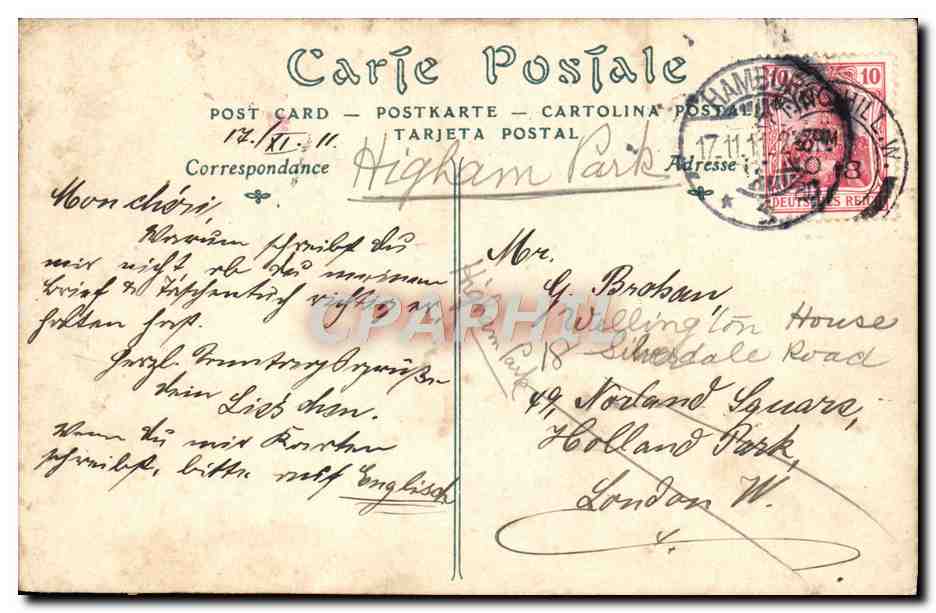 Carte Postale
POST CARD — POSTKARTE — CARTOLINA POSTALE
TARJETA POSTAL
17./XI. 11
Correspondance
Adresse
Higham Park
HAMBURG
17.11.11
HILL.W
10 10
DEUTSCHES REICH
Mon chéri,
Warum schreibst du
mir nicht ob du meinen
Brief & Taschentuch richtig er
halten hast.
Herzl. Sonntagsgrüße
Dein
Lieschen.
Wenn du mir Karten
schreibst, bitte auf Englisch
Higham Park
Mr.
G. Brohan,
Wellington House
18 Silverdale Road
49, Norland Square,
Holland Park,
London W.
CPARHIL